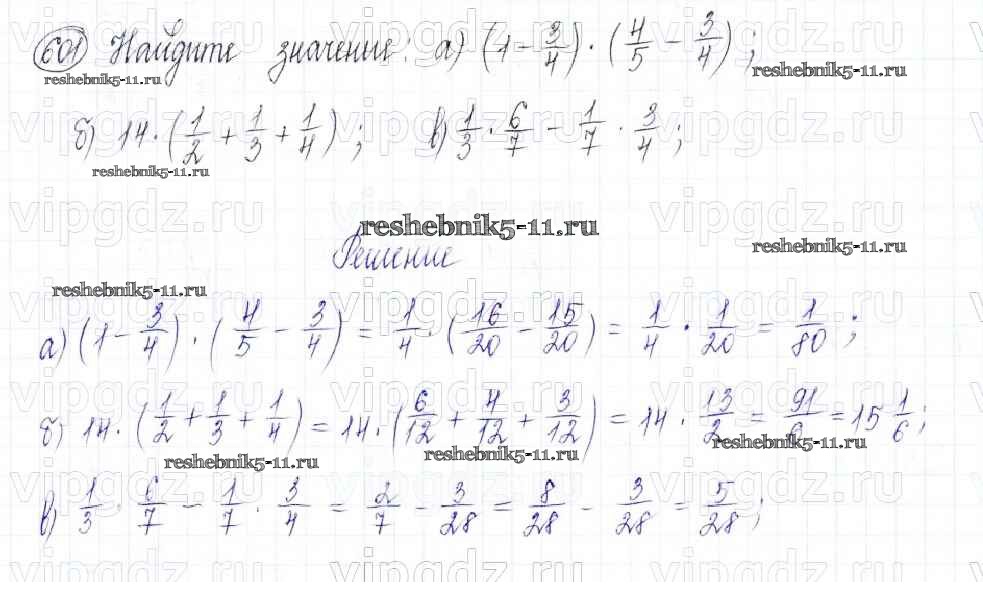 601 Найдите значение: а) (1 - 3/4) · (4/5 - 3/4);
reshebnik5-11.ru
reshebnik5-11.ru
б) 14 · (1/2 + 1/3 + 1/4); в) 1/3 · 6/7 - 1/7 · 3/4;
reshebnik5-11.ru
reshebnik5-11.ru
Решение
reshebnik5-11.ru
reshebnik5-11.ru
а) (1 - 3/4) · (4/5 - 3/4) = 1/4 · (16/20 - 15/20) = 1/4 · 1/20 = 1/80;
б) 14 · (1/2 + 1/3 + 1/4) = 14 · (6/12 + 4/12 + 3/12) = 14 · 13/2 = 91/6 = 15 1/6;
reshebnik5-11.ru
reshebnik5-11.ru
reshebnik5-11.ru
в) 1/3 · 6/7 - 1/7 · 3/4 = 2/7 - 3/28 = 8/28 - 3/28 = 5/28;
vipgdz.ru vipgdz.ru vipgdz.ru